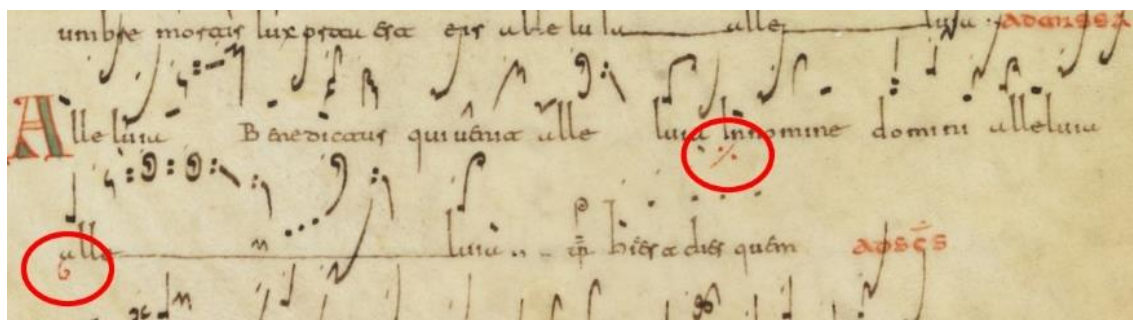 umbre mortis lux orta est eis alleluia alle luia
Alleluia Benedictus qui uenit alle luia In nomine domini alleluia
alle luia dies quem